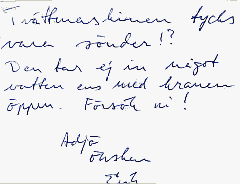 Tvättmaskinen tycks
vara sönder!?
Den tar ej in något
vatten ens med kranen
öppen. Försök ni!
Adjö
önskar